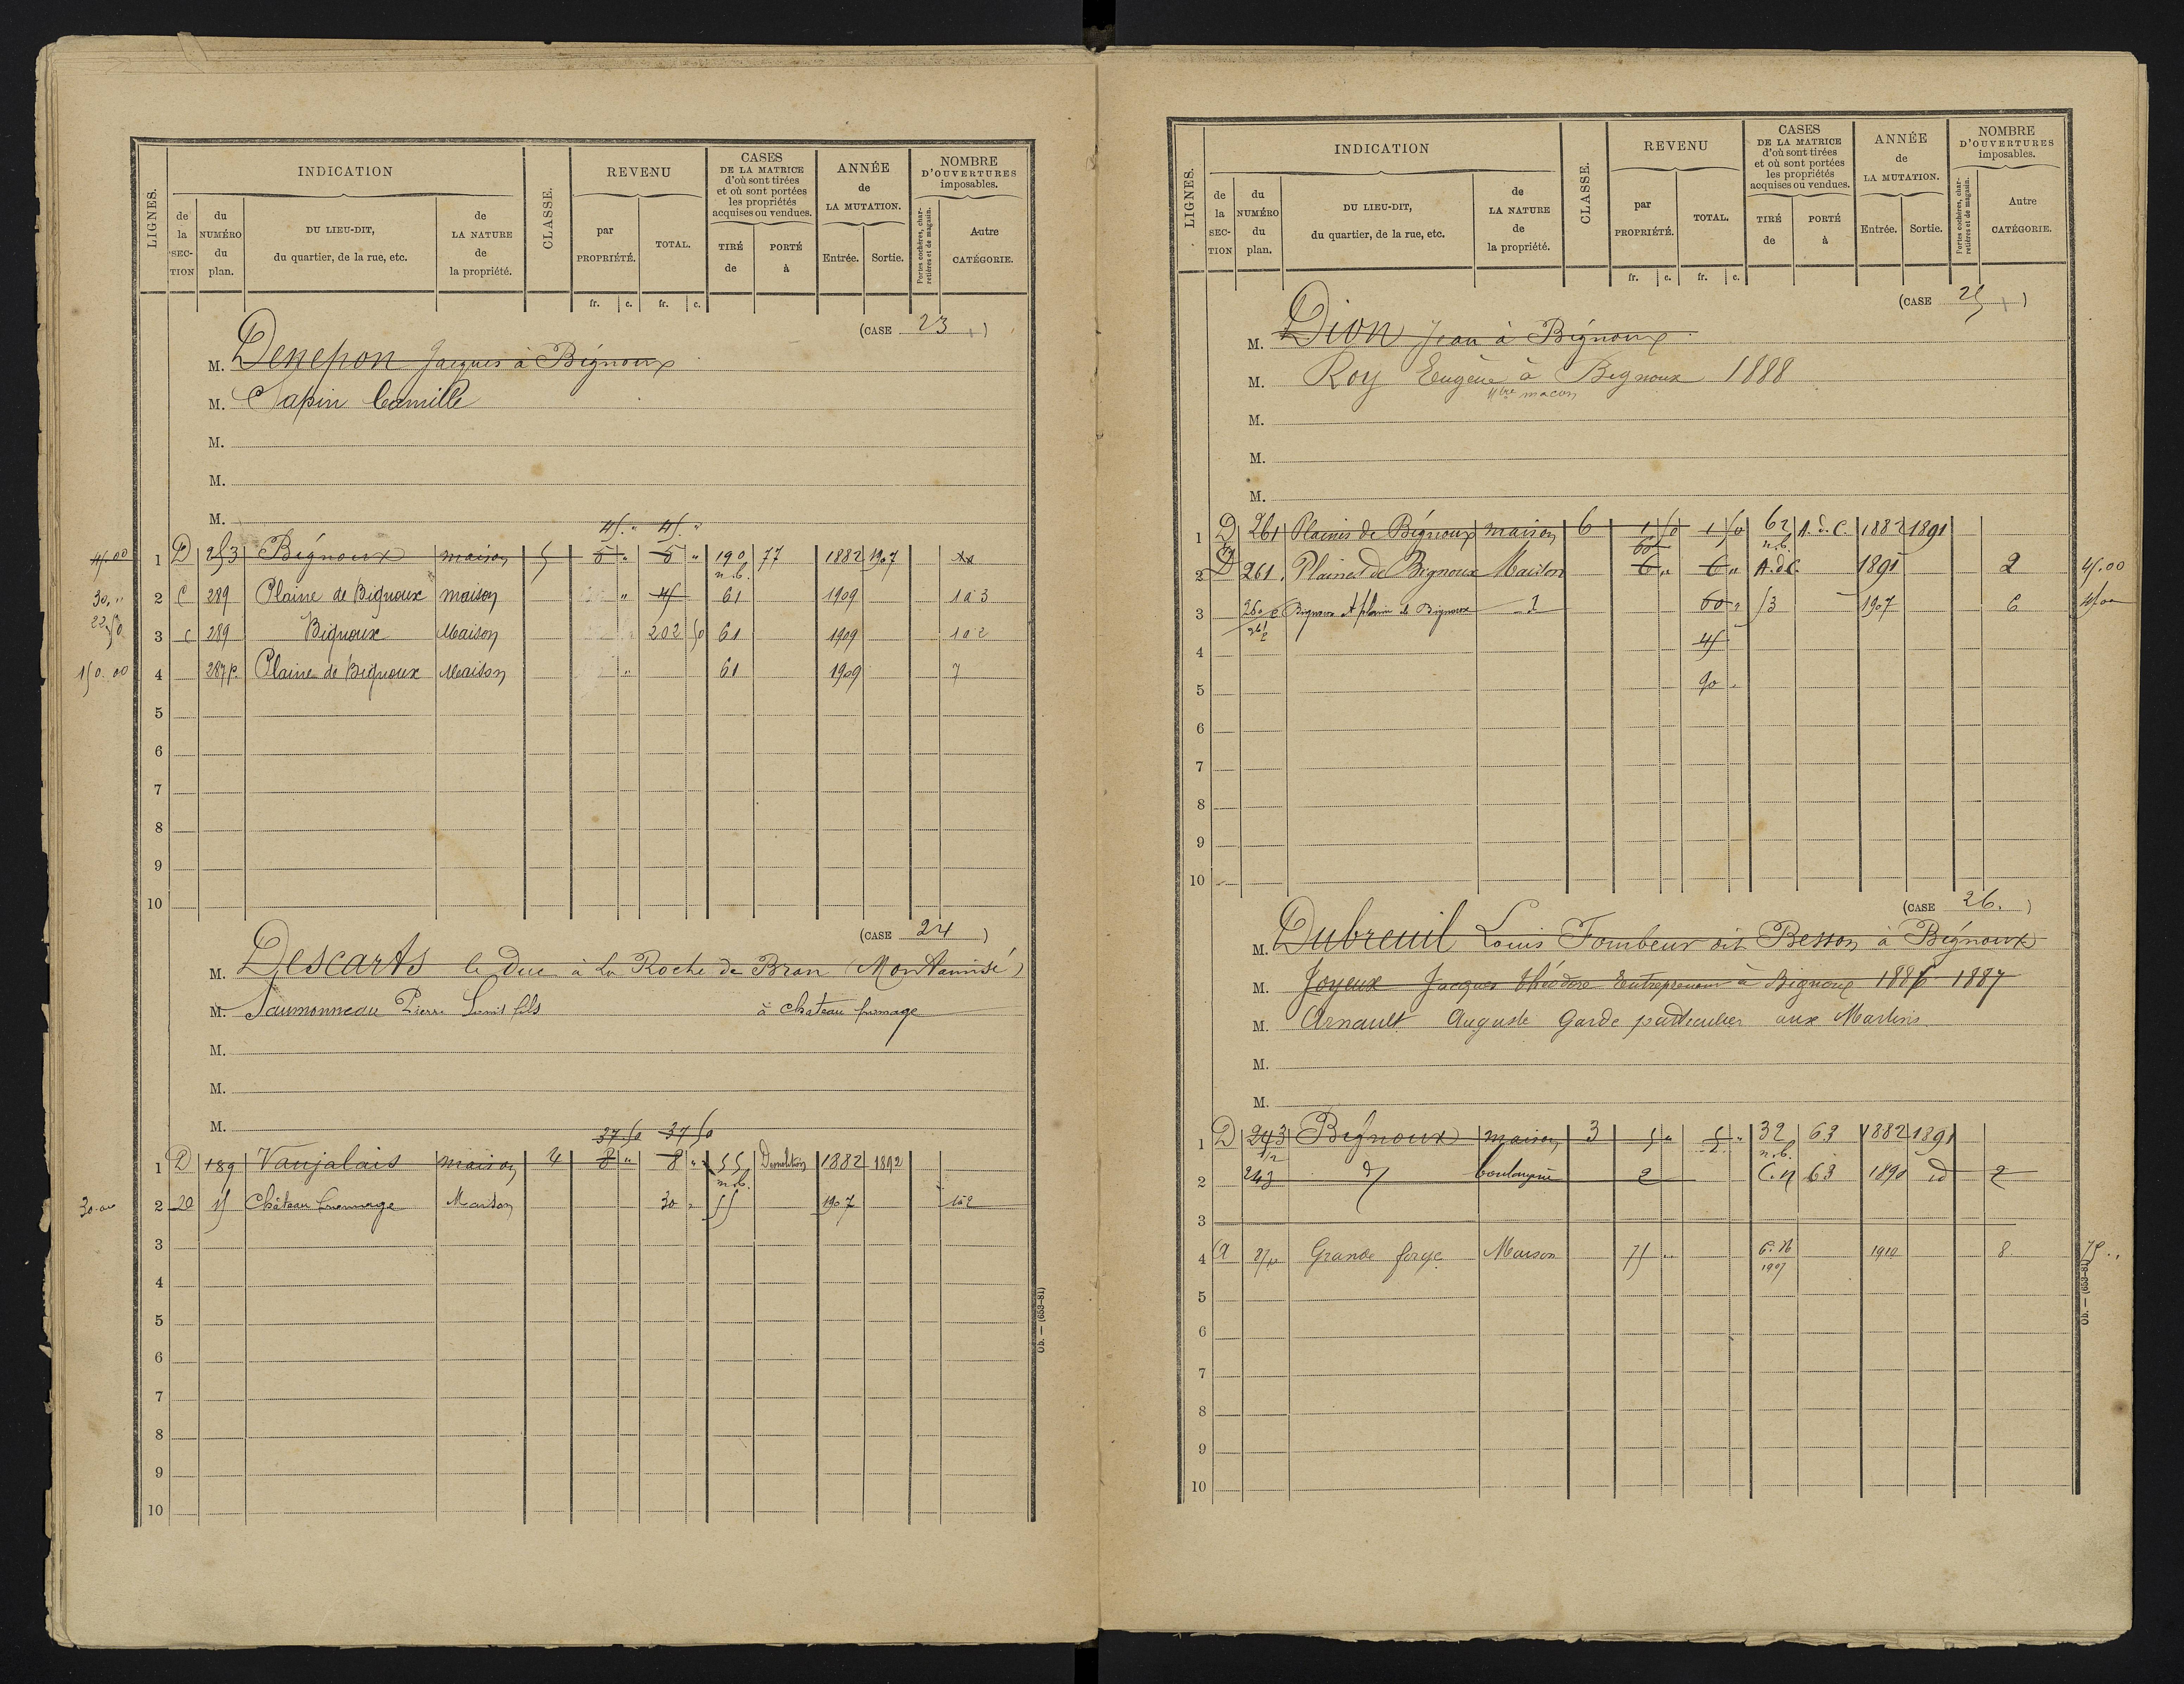 LIGNES.
INDICATION
de la SECTION
du NUMÉRO du plan.
DU LIEU-DIT, du quartier, de la rue, etc.
de LA NATURE de la propriété.
CLASSE.
REVENU
par PROPRIÉTÉ.
TOTAL.
fr. c. fr. c.
CASES DE LA MATRICE d'où sont tirées et où sont portées les propriétés acquises ou vendues.
TIRÉ de
PORTÉ à
ANNÉE de LA MUTATION.
Entrée. Sortie.
NOMBRE D'OUVERTURES imposables.
Portes cochères, charretières et de magasin.
Autre CATÉGORIE.
(CASE 23)
M. Jacques à Bignoux
M. Sapin Camille
M.
M.
M.
45. " 45. "
45.00 1 D 253 Bignoux maison 5 " " 190 77 1882 1907
n.b.
30. " 2 C 289 Plaine de Bignoux maison " 45 61 1909 1 à 3
22.50 3 C 289 Bignoux Maison 202 50 61 1909 1 à 2
150.00 4 287 p. Plaine de Bignoux Maison " 61 1909 7
5
6
7
8
9
10
(CASE 24)
M. Descarts le Duc à La Roche de Bran (Montamisé)
M. Saumonneau Pierre fils à Chateau fromage
M.
M.
M.
37.50 37 50
1 D 189 Vaujalais maison 4 8 " 8 " 55 Demolition 1882 1892
n.b.
30.00 2 15 Château fromage Maison 30 " 55 1907 1 à 2
3
4
5
6
7
8
9
10
Ob. — (653-81)
LIGNES.
INDICATION
de la SECTION
du NUMÉRO du plan.
DU LIEU-DIT, du quartier, de la rue, etc.
de LA NATURE de la propriété.
CLASSE.
REVENU
par PROPRIÉTÉ.
TOTAL.
fr. c. fr. c.
CASES DE LA MATRICE d'où sont tirées et où sont portées les propriétés acquises ou vendues.
TIRÉ de
PORTÉ à
ANNÉE de LA MUTATION.
Entrée. Sortie.
NOMBRE D'OUVERTURES imposables.
Portes cochères, charretières et de magasin.
Autre CATÉGORIE.
(CASE 25)
M. Dion Jean à Bignoux
M. Roy Eugène à Bignoux 1888
maçon
M.
M.
M.
1 D 261 Plaines de Bignoux maison 6 1 50 1 50 62 A. d. C. 1882 1891
60 n.b.
2 D 261. Plaines de Bignoux Maison 6 " 6 " A. d. C. 1891 2 45.00
3 260 Bignoux et plaine de Bignoux 60 " 53 1907 6
261
4 45
5 90 "
6
7
8
9
10
(CASE 26.)
M. Dubreuil Louis Fombeur dit Besson à Bignoux
M. Joyeux Jacques théodore Entrepreneur à Bignoux 1887
M. Arnault Auguste Garde particulier aux Martins
M.
M.
1 D 243 Bignoux maison 3 5 " 5 " 32 63 1882 1891
1/2 n.b.
2 243 d° boulangerie 2 C. n 63 1890 id 2
3
4 A Grande forge Maison 75 " C. N 1910 8 75 "
1907
5
6
7
8
9
10
Ob. — (653-81)